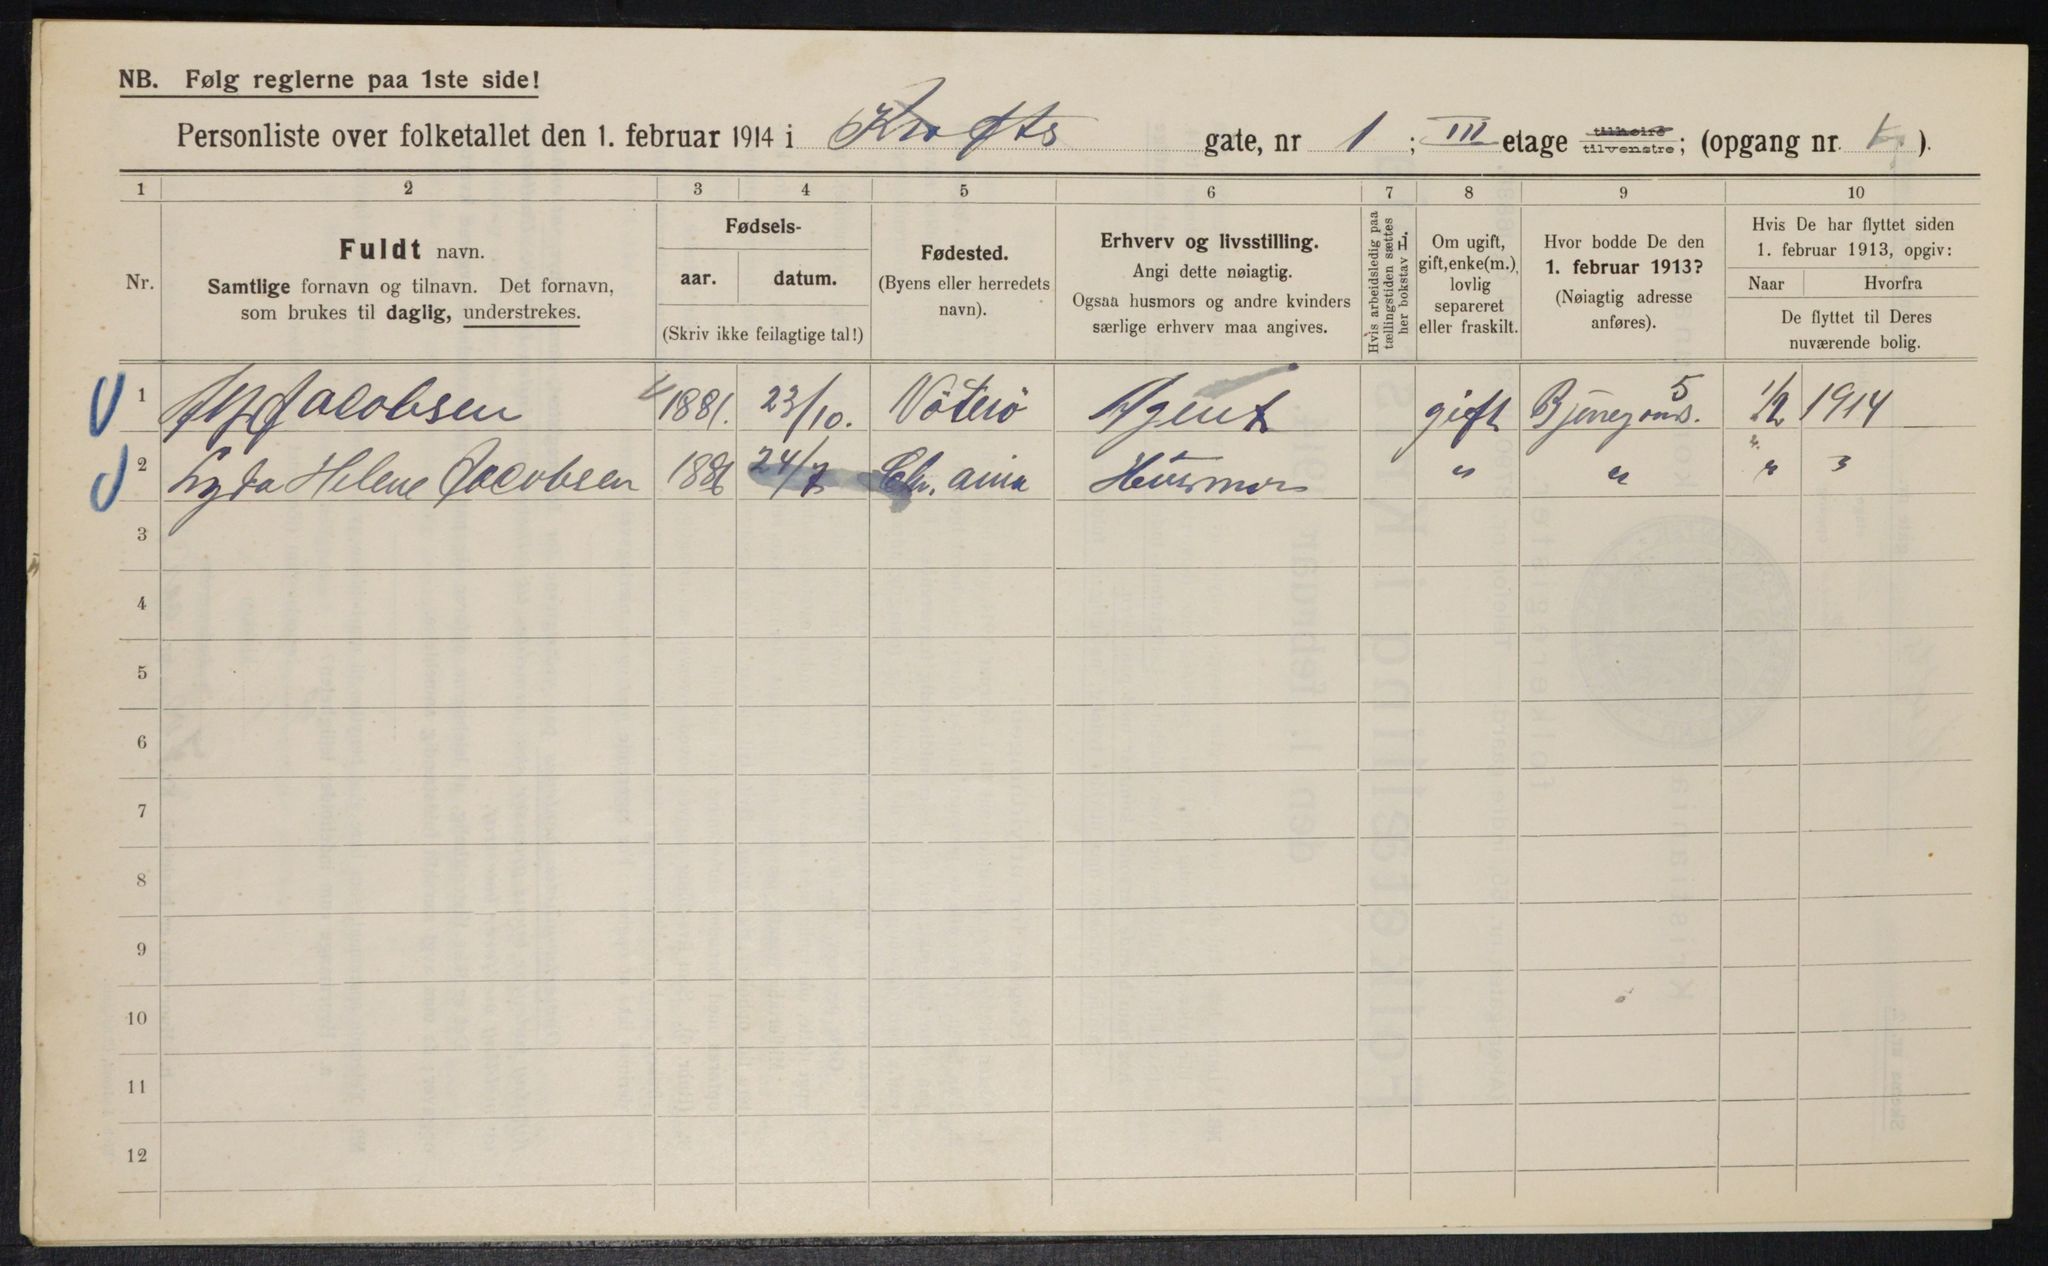 NB. Følg reglerne paa 1ste side!
Personliste over folketallet den 1. februar 1914 i Krafts gate, nr 1; III etage tilhøire tilvenstre; (opgang nr. ).
1 2 3 4 5 6 7 8 9 10
Nr.
Fuldt navn.
Samtlige fornavn og tilnavn. Det fornavn,
som brukes til daglig, understrekes.
Fødsels-
aar. datum.
(Skriv ikke feilagtige tal!)
Fødested.
(Byens eller herredets
navn).
Erhverv og livsstilling.
Angi dette nøiagtig.
Ogsaa husmors og andre kvinders
særlige erhverv maa angives.
Hvis arbeidsledig paa
tællingstiden sættes
her bokstav L.
Om ugift,
gift, enke(m.),
lovlig
separeret
eller fraskilt.
Hvor bodde De den
1. februar 1913?
(Nøiagtig adresse
anføres).
Hvis De har flyttet siden
1. februar 1913, opgiv:
Naar Hvorfra
De flyttet til Deres
nuværende bolig.
1 Jacobsen 1881. 23/10. Nöterö Agent gift 5 1/2 1914
2 Lyda Helene Jacobsen 1886 24/7 Chr. ania Husmor " " " "
3
4
5
6
7
8
9
10
11
12